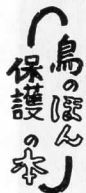 「鳥のほん
保護の本」